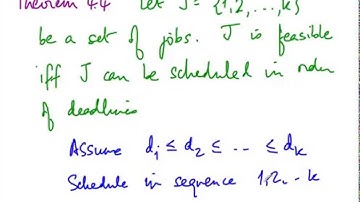 Theorem 4.4 Let J = {1,2, ..., k}
be a set of jobs. J is feasible
iff J can be scheduled in order
of deadlines
Assume d₁ ≤ d₂ ≤ ... ≤ dₖ
Schedule in sequence 1,2...k